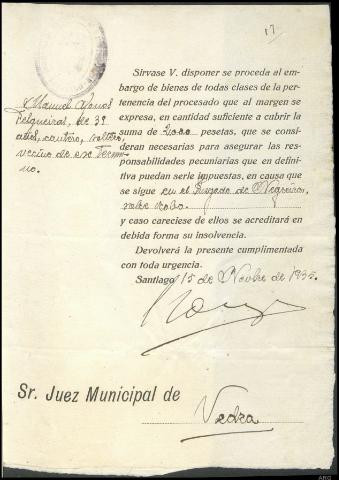 17
Sírvase V. disponer se proceda al em-
bargo de bienes de todas clases de la per-
tenencia del procesado que al margen se
expresa, en cantidad suficiente a cubrir la
suma de 4000 pesetas, que se consi-
deran necesarias para asegurar las res-
ponsabilidades pecuniarias que en defini-
tiva puedan serle impuestas, en causa que
se sigue en el Juzgado de Negreira,
sobre robo.
y caso careciese de ellos se acreditará en
debida forma su insolvencia.
Devolverá la presente cumplimentada
con toda urgencia.
Santiago 15 de Novbre de 1935.
Manuel
Felgueiras, de 39
años, cantero, soltero,
vecino de ese Termi-
no.
Sr. Juez Municipal de
Vedra
ARG